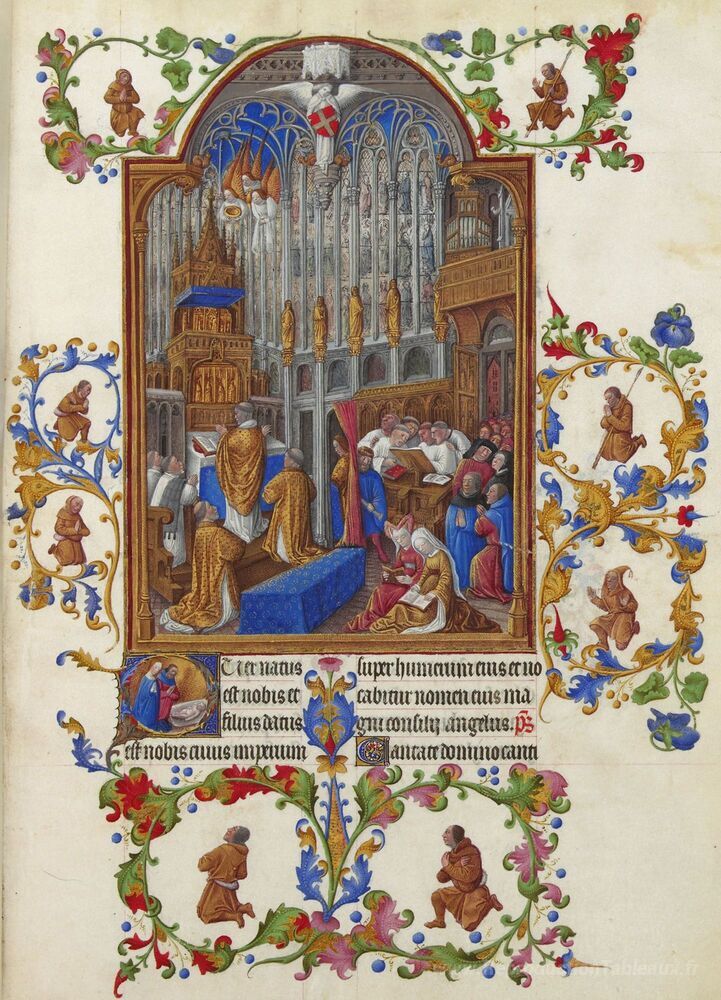 Uer natus
est nobis et
filius datus
est nobis cuius imperium
super humerum eius et uo
cabitur nomen eius ma
gni consilij angelus. p̄s
Cantate domino canti